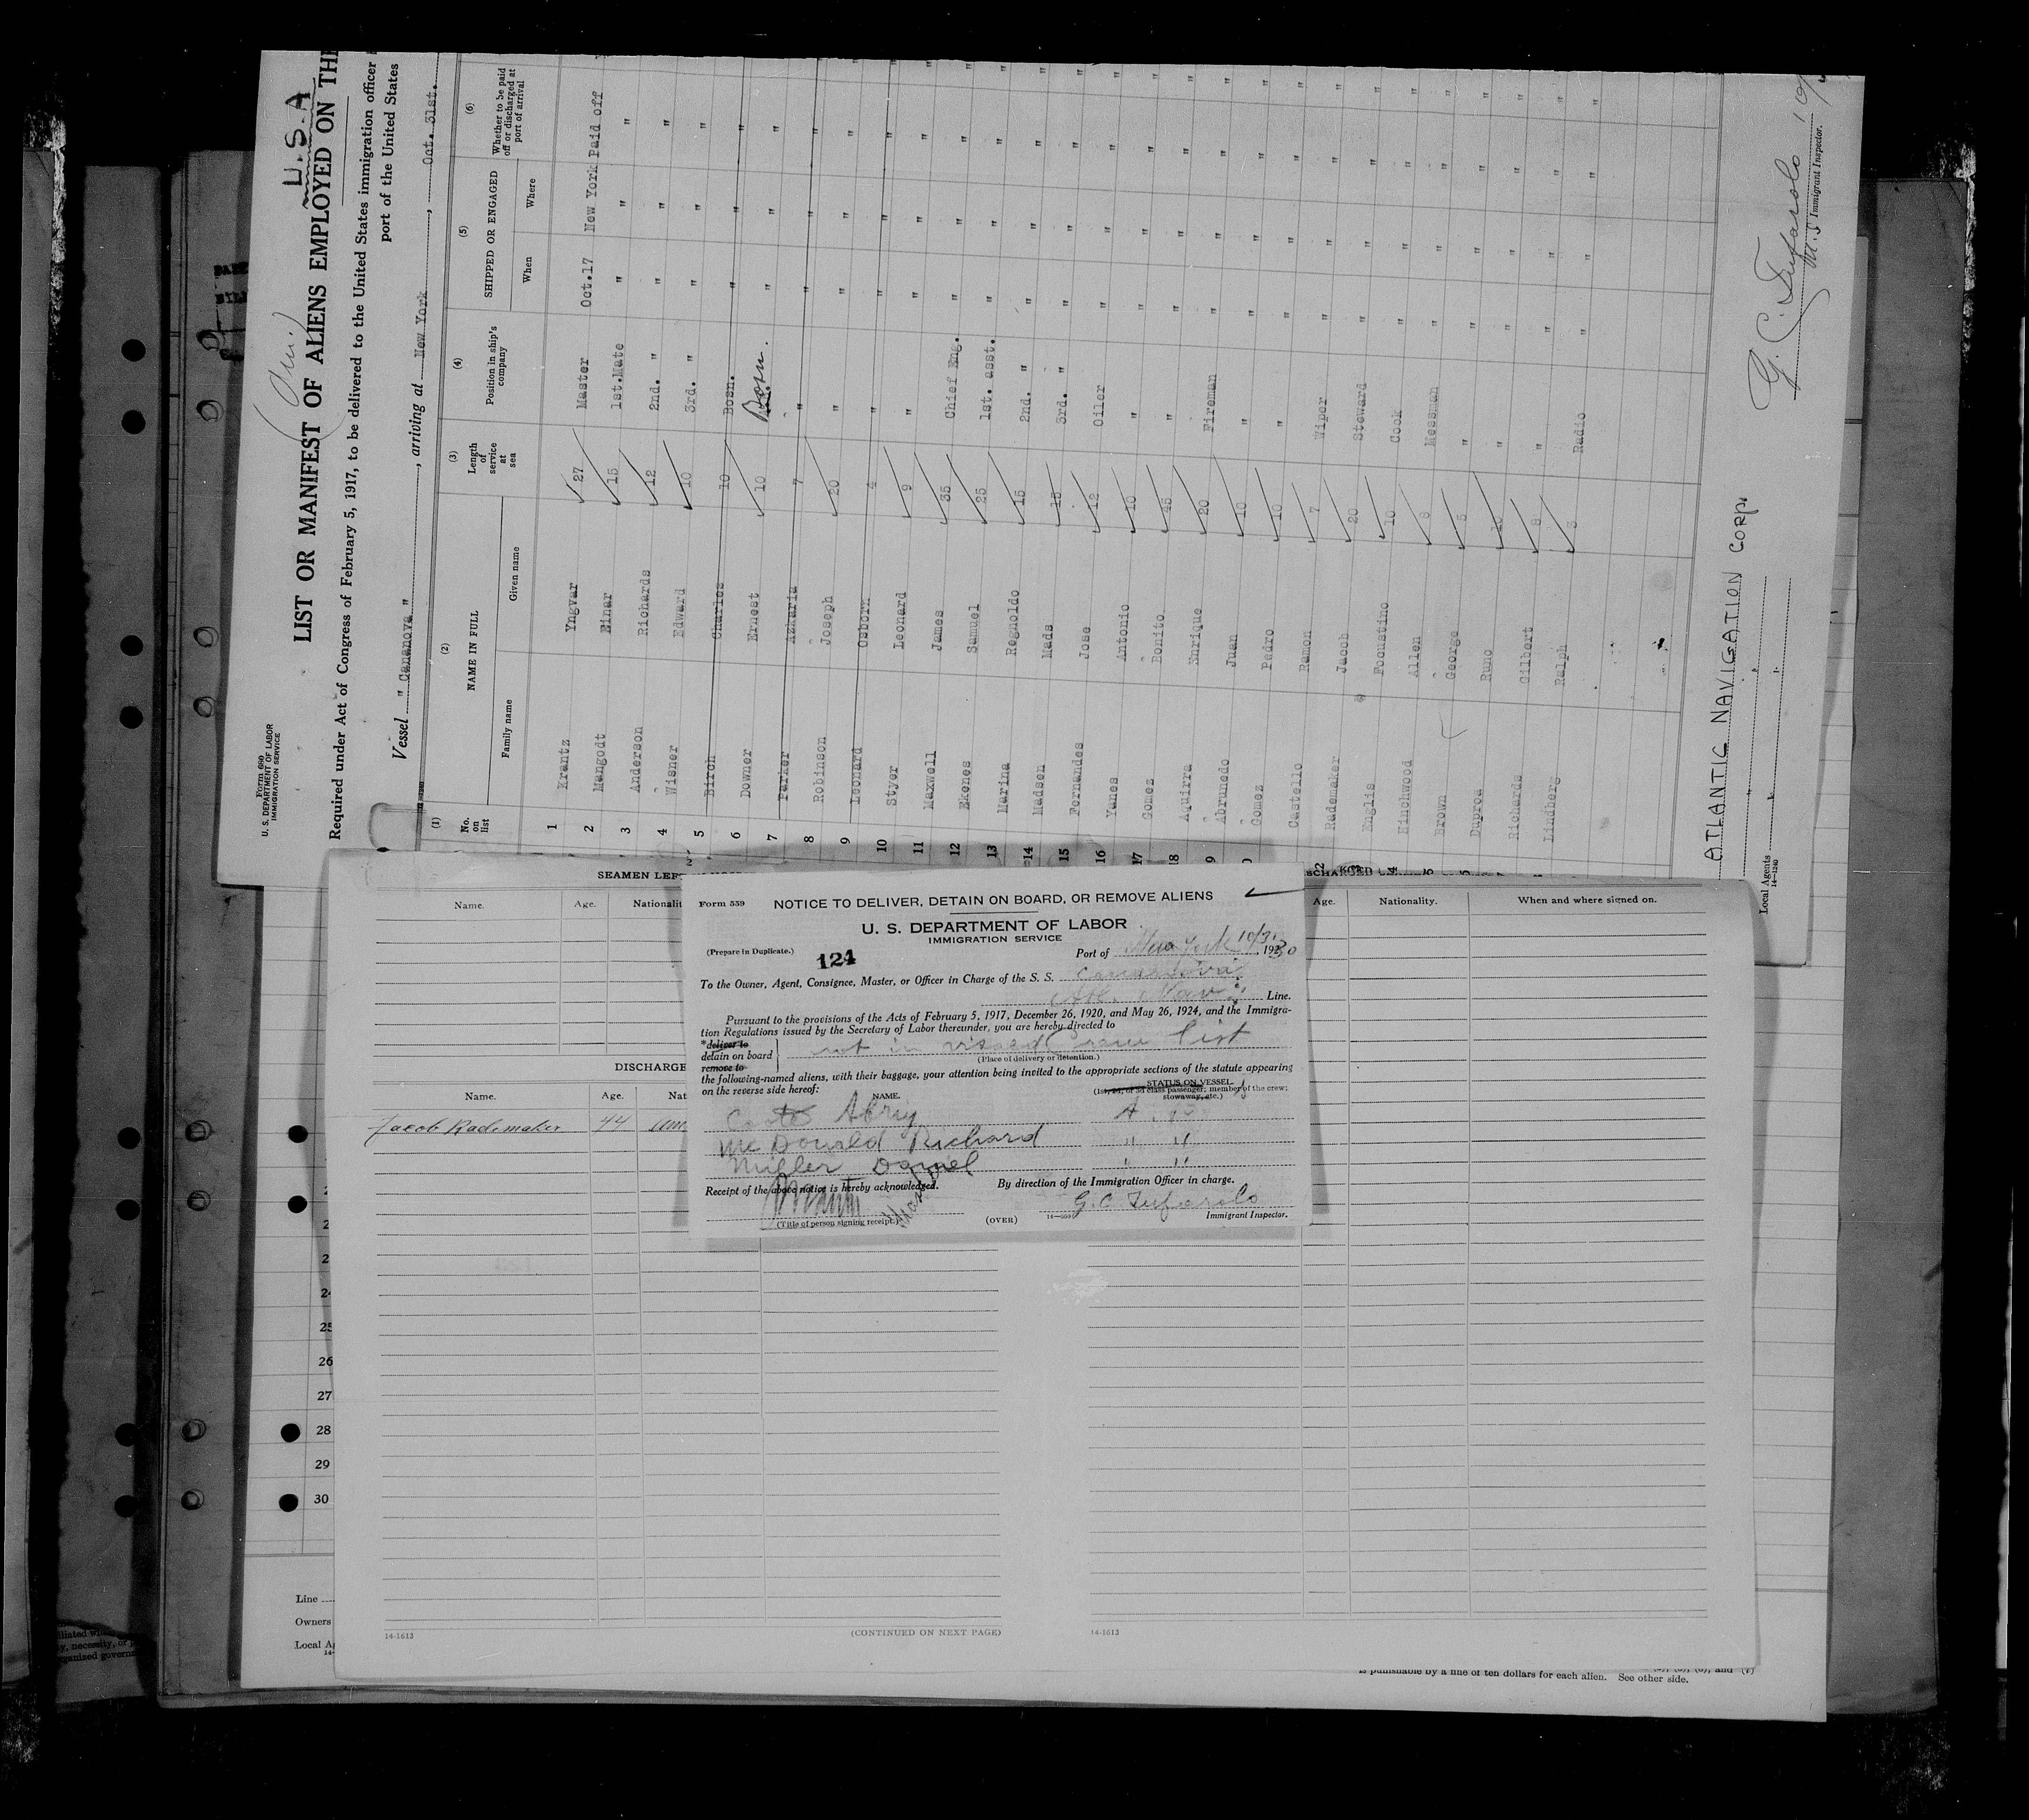 Form 680
U. S. DEPARTMENT OF LABOR
IMMIGRATION SERVICE
U.S.A
LIST OR MANIFEST OF ALIENS EMPLOYED ON THE
Required under Act of Congress of February 5, 1917, to be delivered to the United States immigration officer
port of the United States
Vessel " Cananova ", arriving at New York, Oct. 31st.
(1) (2) (3) (4) (5) (6)
No. on list
NAME IN FULL
Family name Given name
Length of service at sea
Position in ship's company
SHIPPED OR ENGAGED
When Where
Whether to be paid off or discharged at port of arrival
1 Krantz Yngvar 27 Master Oct.17 New York Paid off
2 Mangodt Einar 15 1st.Mate " " "
3 Anderson Richards 12 2nd. " " " "
4 Wisner Edward 10 3rd. " " " "
5 Birch Charles 10 Bosn. " " "
6 Downer Ernest 10 Bosn. " " "
7 Parker Azkaria 7 " " " "
8 Robinson Joseph 20 " " " "
9 Leonard Osborn 4 " " " "
10 Styer Leonard 9 " " " "
11 Maxwell James 35 Chief Eng. " " "
12 Ekenes Samuel 25 1st. asst. " " "
13 Marina Regnoldo 15 2nd. " " " "
14 Madsen Mads 15 3rd. " " " "
15 Fernandes Jose 12 Oiler " " "
16 Yanes Antonio 10 " " " "
17 Gomez Bonito 45 " " " "
18 Aquirra Enrique 20 Fireman " " "
9 Abrunedo Juan 10 " " " "
0 Gomez Pedro 10 " " " "
Castello Ramon 7 Wiper " " "
2 Rademaker Jacob 20 Steward " " "
Englis Focustino 10 Cook " " "
4 Hinchwood Allen 8 Messman " " "
Brown George 5 " " " "
Duproa Runo 10 " " " "
Richards Gilbert 8 " " " "
Lindberg Ralph 3 Radio " " "
ATLANTIC NAVIGATION CORP.
Local Agents
14-1240
G. C. Tufarolo
U.S Immigrant Inspector.
SEAMEN LEF
SCHARGED
Name. Age. Nationalit
Age. Nationality. When and where signed on.
DISCHARGE
Name. Age. Nat
Jacob Rademaker 44 Am
Form 559
NOTICE TO DELIVER, DETAIN ON BOARD, OR REMOVE ALIENS
U. S. DEPARTMENT OF LABOR
IMMIGRATION SERVICE
(Prepare in Duplicate.)
124
Port of New York 10/31, 1930
To the Owner, Agent, Consignee, Master, or Officer in Charge of the S. S. Cananova
Atl. Nav. Line.
Pursuant to the provisions of the Acts of February 5, 1917, December 26, 1920, and May 26, 1924, and the Immigra-
tion Regulations issued by the Secretary of Labor thereunder, you are hereby directed to
*deliver to
detain on board
remove to
not in visaed crew list
(Place of delivery or detention.)
the following-named aliens, with their baggage, your attention being invited to the appropriate sections of the statute appearing
on the reverse side hereof:
NAME.
STATUS ON VESSEL
(1st, 2d, or 3d class passenger; member of the crew; stowaway, etc.)
McDonald Richard " "
Miller Daniel " "
Receipt of the above notice is hereby acknowledged.
By direction of the Immigration Officer in charge.
G. C. Tufarolo
(Title of person signing receipt.)
(OVER)
Immigrant Inspector.
24
25
26
27
28
29
30
Line
Owners
Local A
14-1613
(CONTINUED ON NEXT PAGE)
14-1613
is punishable by a fine of ten dollars for each alien. See other side.